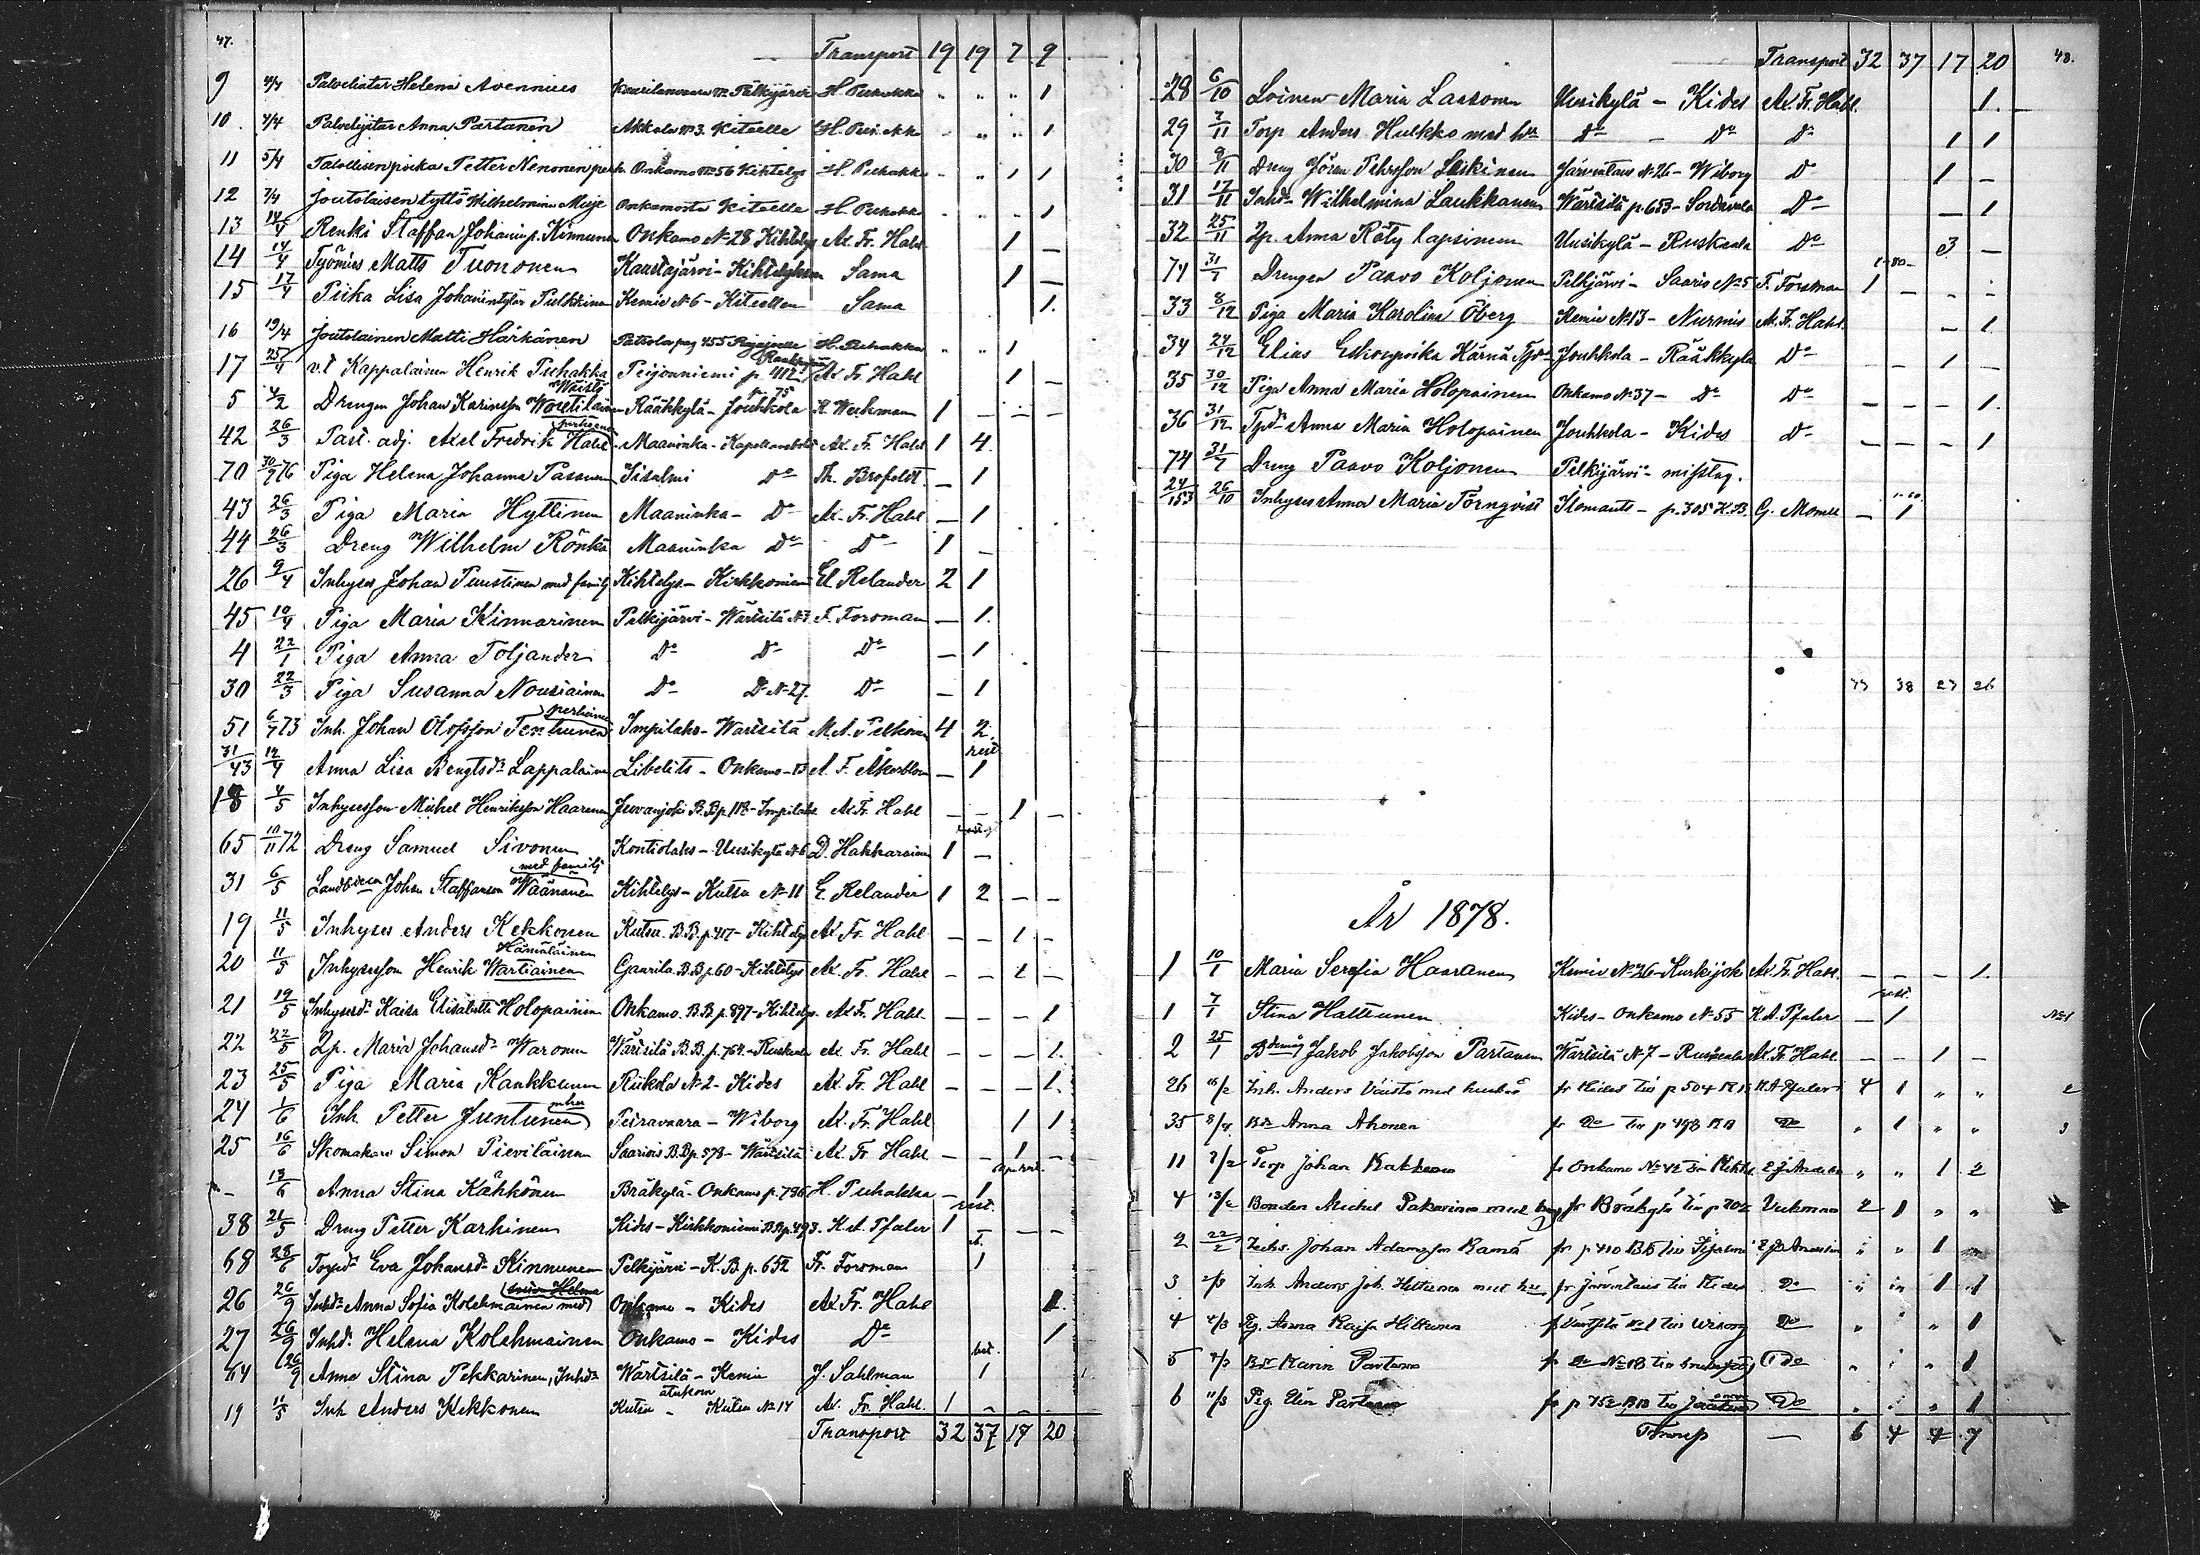 47.
Transport 19 19 7 9
9 4/4 Palvelustar Helena Avennius Kaurilanvaara Pälkjärvi H. Puhakka " " " 1
10 7/4 Palvelijatar Anna Partanen Akkala No 3. Kiteelle H. Puhakka " " " 1
11 5/4 Talollisenpoika Petter Nenonen perh. Onkamo No 56 Kihtelys H. Puhakka - " 1 1
12 7/4 Joutolaisen tyttö Wilhelmina Muje Onkamosta Kiteelle H. Puhakka " " - 1
13 14/4 Renki Staffan Johaninp. Kinnunen Onkamo No 28 Kihtelys Ax. Fr. Hahl 1 -
14 14/4 Työmies Matts Tuononen Kaustajärvi - Kihtelyksen Sama 1 -
15 17/4 Piika Lisa Johanintytär Pulkkinen Kemie No 6 - Kiteeseen Sama 1.
16 19/4 Joutolainen Matti Härkänen Patsola pag 455 H. Puhakka " " 1
17 25/4 v.t Kappalainen Henrik Puhakka Peijonniemi p. 412 Ax Fr. Hahl 1 -
Wäistö p. 75
5 4/2 Drengen Johan Karinsson Woutilainen Rääkkylä - Jouhkola K. Weckman 1 - - -
perheineen
42 26/3 Past. adj. Axel Fredrik Hahl Maaninka - Kapellansbolet Ax. Fr. Hahl 1 4.
70 30/7 76 Piga Helena Johanna Passunen Iisalmi Do Th. Brofeldt - 1
43 26/3 Piga Maria Hyttinen Maaninka - Do Ax. Fr. Hahl - 1
44 26/3 Dreng Wilhelm Rönkä Maaninka Do Do 1 -
26 9/4 Inhyses Johan Puustinen med familj Kihtelys - Kirkkoniemi El. Relander 2 1
45 10/4 Piga Maria Kinnarinen Pelkijärvi - Wärtsilä No 3 F. Forsman - 1.
4 22/1 Piga Anna Toljander Do Do Do - 1
30 22/3 Piga Susanna Nousiainen Do Do No 27. Do - 1
perheineen
51 6/7 73 Inh. Johan Olofsson Tenhunen Impilaks - Wärtsilä M. A. Pelkonen 4 2.
rest
31/43 12/4 Anna Lisa Bengtsdr. Lappalainen Libelits - Onkamo - 13 A. F. Åkerblom - 1
18 4/5 Inhysesson Michel Henriksson Haaranen Juvanjoki B.B p. 118 - Impilaks Ax Fr. Hahl - - 1 -
65 10/11 72 Dreng Samuel Sivonen Kontiolaks - Uusikylä No 6 D. Hakkarainen 1 -
med familj
31 6/5 Landbonden Johan Staffansson Wäänänen Kihtelys - Kutsa No 11 E. Relander 1 2 - -
19 11/5 Inhyses Anders Kekkonen Kutsu. B.B. p. 417 - Kihtelys Ax Fr. Hahl - - 1 -
Hämäläinen
20 11/5 Inhysesson Henrik Wartiainen Gaurila. B.B p. 60 - Kihtelys Ax. Fr. Hahl - - 1 -
21 19/5 Inhysesdr Kaisa Elisabeth Holopainen Onkamo. B.B. p. 897 - Kihtelys Ax Fr. Hahl - - - 1
22 22/5 Qp. Maria Johansdr Waronen Wärtsilä B.B. p. 764. - Ruskeala Ax. Fr. Hahl - - - 1.
23 25/5 Piga Maria Kankkunen Riikola No 2 - Kides Ax. Fr. Hahl - - - 1.
mhu
24 1/6 Inh. Petter Juntunen Peiravaara - Wiborg Ax. Fr. Hahl 1 1
25 16/6 Skomakare Simon Pieviläinen Saarios B.B p. 578 - Wärtsilä Ax. Fr. Hahl - - 1 -
- 13/6 Anna Stina Kähkönen Bräkylä - Onkamo p. 796 H. Puhakka - 1
rest.
38 21/5 Dreng Petter Karhinen Kides - Kirkkoniemi B.B p. 493. K. A. Pfaler 1 - - -
68 28/6 Torpdr Eva Johansdr Kinnunen Pelkijärvi - K. B. p. 652 Fr. Forsman 1
26 26/9 Inhdr Anna Sofia Kolehmainen med Onkamo - Kides Ax. Fr. Hahl 1.
27 26/9 Inhdr. Helena Kolehmainen Onkamo - Kides Do 1
44 26/9 Anna Stina Pekkarinen, Inhdr Wärtsilä - Kemie J. Sahlman 1
19 11/5 Inh Anders Kekkonen Kutsu - Kutsu No 14 Ax. Fr. Hahl. 1 - - -
Transport 32 37 17 20
48.
Transport 32 37 17 20
28 6/10 Loinen Maria Lassonen Uusikylä - Kides Ax. Fr. Hahl. 1.
29 7/11 Torp Anders Hulkko med hu Do - Do Do 1 1
30 9/11 Dreng Jöran Pehrsson Leskinen Järventaus No 26 - Wiborg Do 1 -
31 17/11 Inhdr Wilhelmina Laukkanen Wärtsilä p. 653 - Sordavala Do - 1
32 25/11 Anna Räty lapsineen Uusikylä - Ruskeala Do 3 -
74 31/7 Drengen Paavo Koljonen Pelkjärvi - Saario No 5 F. Forsman 1 - - -
33 8/12 Piga Maria Karolina Öberg Kemie No 13 - Nurmis Ax. Fr. Hahl. - 1
34 24/12 Elias Eskonpoika Härmä Jouhkola - Rääkkylä Do - 1 -
35 30/12 Piga Anna Maria Holopainen Onkamo No 37 - Do Do - - - 1.
36 31/12 Tpdr Anna Maria Holopainen Jouhkola - Kides Do - - - 1
74 31/7 Dreng Paavo Koljonen Pelkijärvi - misstag.
24/153 26/10 Inhyses Anna Maria Törnqvist Ilomants - p. 305 K.B. G. Monell - 1
33 38 23 26
År 1878.
1 10/1 Maria Serafia Haaranen Kemie No 26 - Kurkijoki Ax Fr. Hahl. - - - 1.
rest.
1 7/1 Stina Halttunen Kides - Onkamo No 55 K. A. Pfaler - 1 No 1
2 25/1 Jakob Jakobsson Partanen Wärtsilä No 7 - Ruskeala Ax. Fr. Hahl. - - 1 -
26 16/2 Inh. Anders Väistö med hustru fr Kides till p 504 K. A Pfaler 4 1 " " 2
35 8/4 Anna Ahonen fr Do till p 498 Do " 1 " " 3
11 7/2 Torp Johan Kakkonen fr Onkamo No 42 " " 1 2
4 13/2 Bonden Michel Pakarinen med fr Bräkylä till p 702 Veckman 2 1 " "
2 22/2 Johan Adamsson Rämä fr p 410 BB till " " 1
3 2/3 Inh Anders Joh. Hiltunen med hu fr Järventaus till Kides Do " " 1 1
4 4/3 Pg. Anna Kaisa Hiltunen fr Värtsilä No 1 till Wiborg Do " " " 1
5 4/3 Karin Partanen fr Do No 18 till Do " " " 1
6 11/3 Pig. Elin Partanen fr p 752 BB till Do " " " 1
Transp - 6 4 4 7